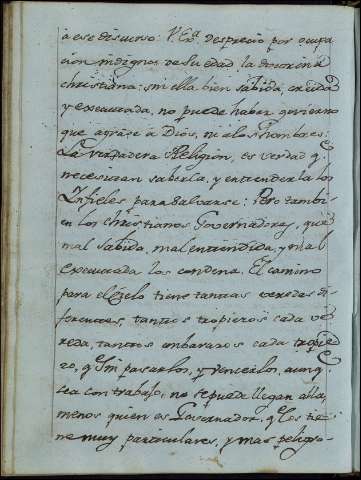 a ese discurso: V Exª despreció por ocupa
cion indigna de su edad la doctrina
christiana: sin ella bien sabida, creida
y executada, no puede haber govierno
que agrade à Dios, ni a los hombres:
La verdadera Religion, es verdad q.
necesitan saberla, y entenderla los
Infieles para salvarse: Pero tambi-
en los christianos Governadores, que
mal sabida, mal entendida, y mal
executada los condena. El camino
para el Cielo tiene tantas veredas di-
ferentes, tantos tropiezos cada ve
reda, tantos embarazos cada tropie
zo, q. sin pasarlos, y vencerlos, aunq.
sea con trabajo, no se puede llegar alla,
menos quien es Governador, q. los tie-
ne muy particulares, y mas peligro-